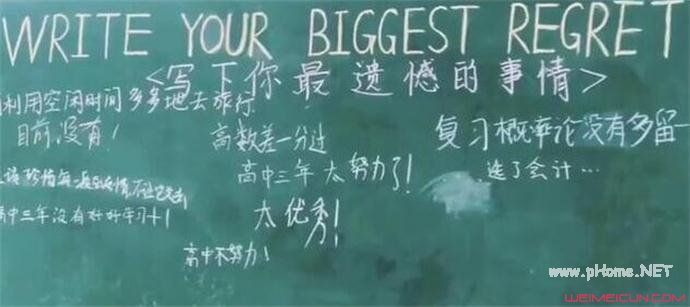 WRITE YOUR BIGGEST REGRET
<写下你最遗憾的事情>
利用空闲时间多多地去旅行
目前没有!
高数差一分过
复习概率论没有多留一
高中三年太努力了!
选了会计…
珍惜每一
高中三年没有好好学习+1
太优秀!
高中不努力!
www.pHome.NET
WEIMEICUN.COM